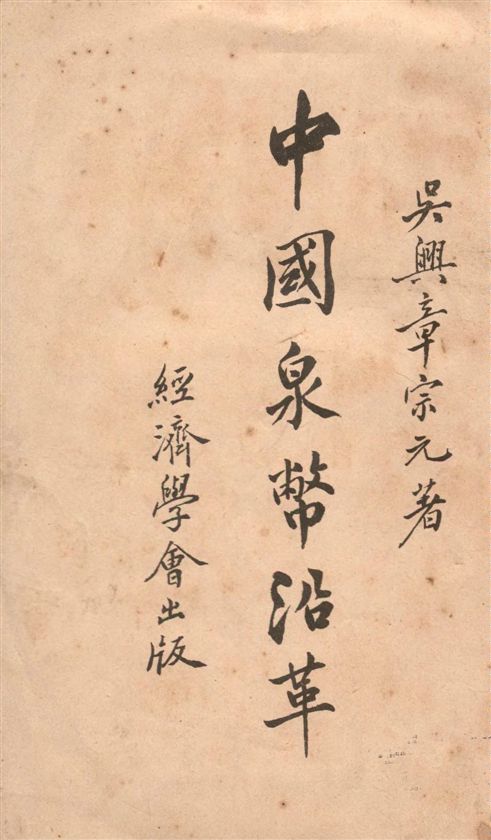 吳興章宗元著
中國泉幣沿革
經濟學會出版